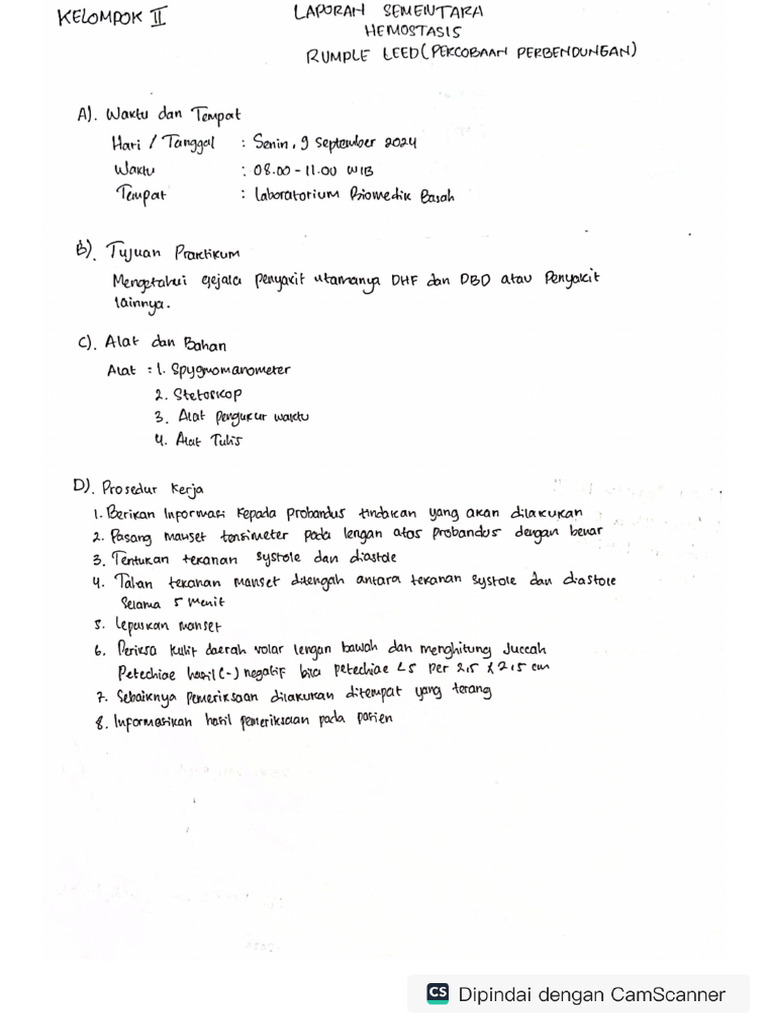 KELOMPOK II
LAPORAN SEMENTARA
HEMOSTASIS
RUMPLE LEED (PERCOBAAN PERBENDUNGAN)
A). Waktu dan Tempat
Hari / Tanggal : Senin, 9 September 2024
Waktu : 08.00 - 11.00 WIB
Tempat : Laboratorium Biomedik Basah
B). Tujuan Praktikum
Mengetahui gejala penyakit utamanya DHF dan DBD atau Penyakit
lainnya.
C). Alat dan Bahan
Alat : 1. Spygnomanometer
2. Stetoskop
3. Alat pengukur waktu
4. Alat Tulis
D). Prosedur Kerja
1. Berikan Informasi Kepada Probandus tindakan yang akan dilakukan
2. Pasang manset tensimeter pada lengan atas probandus dengan benar
3. Tentukan tekanan systole dan diastole
4. Tahan tekanan manset ditengah antara tekanan systole dan diastole
Selama 5 Menit
5. Lepaskan manset
6. Periksa kulit daerah volar lengan bawah dan menghitung Jumlah
Petechiae hasil (-) negatif bila petechiae < 5 per 2,5 x 2,5 cm
7. Sebaiknya Pemeriksaan dilakukan ditempat yang terang
8. Informasikan hasil pemeriksaan pada pasien
CS Dipindai dengan CamScanner